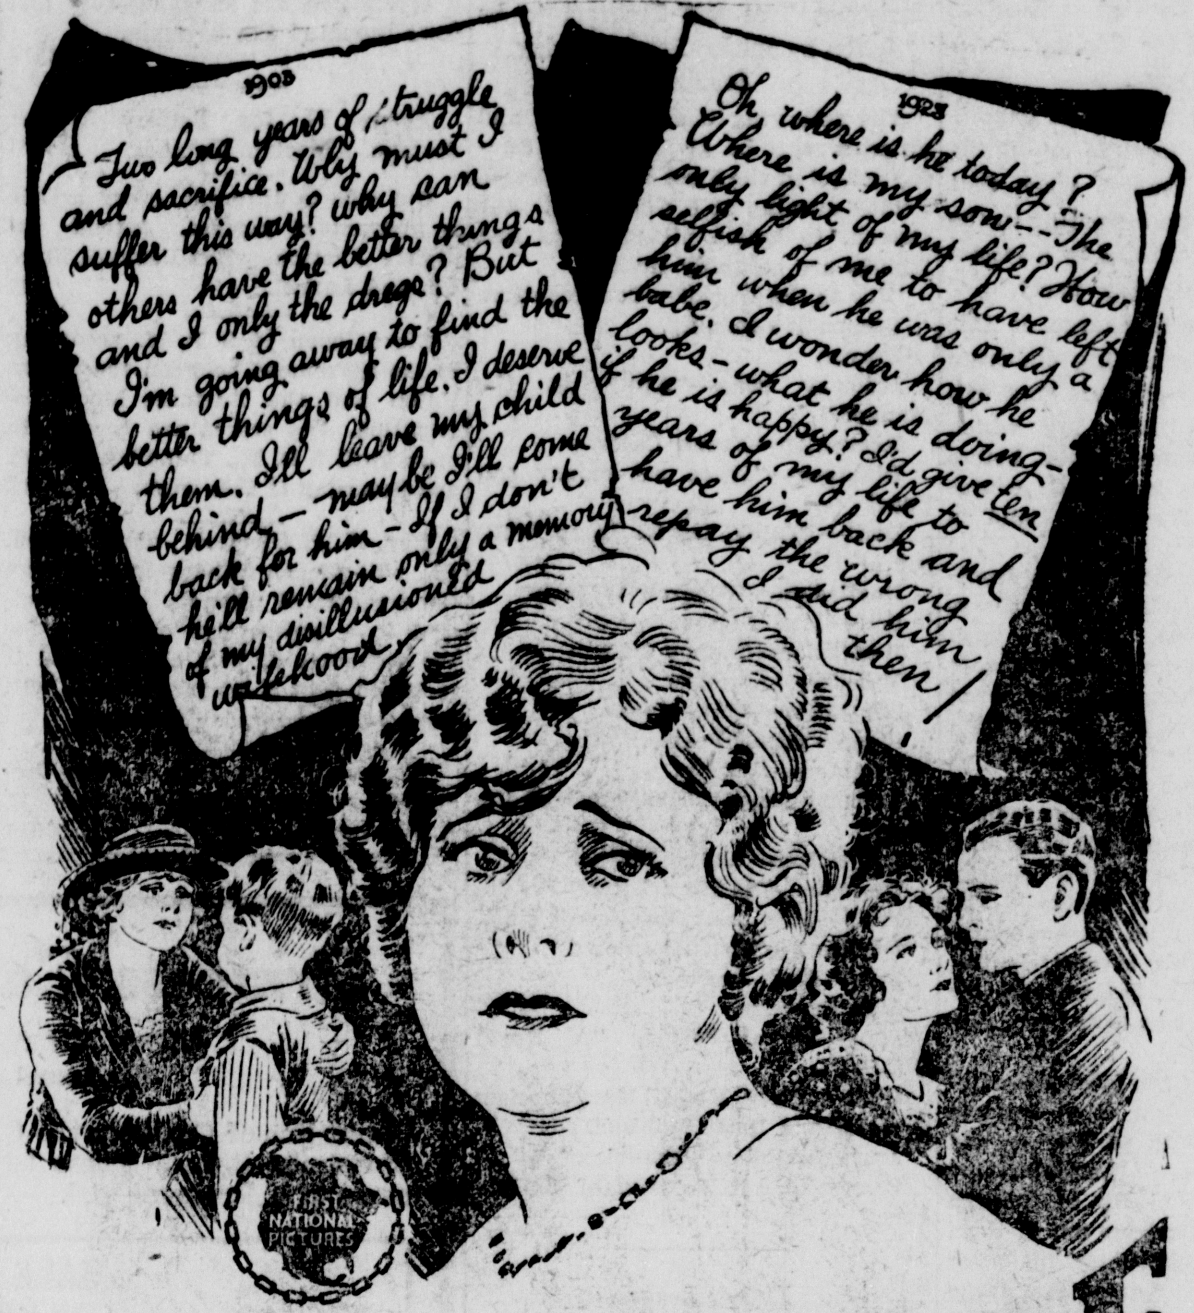 1903
Two long years of struggle
and sacrifice. Why must I
suffer this way? why can
others have the better things
and I only the dregs? But
I'm going away to find the
better things of life. I deserve
them. I'll leave my child
behind – maybe I'll come
back for him – If I don't
he'll remain only a memory
of my disillusioned
wifehood
1923
Oh, where is he today?
Where is my son -- The
only light of my life? How
selfish of me to have left
him when he was only a
babe. I wonder how he
looks – what he is doing –
if he is happy? I'd give ten
years of my life to
have him back and
repay the wrong
I did him
then!
FIRST
NATIONAL
PICTURES